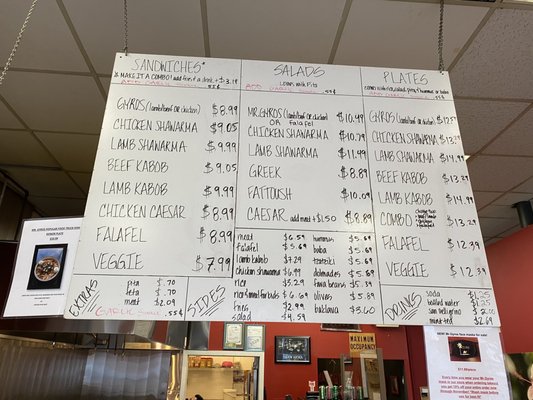 SANDWICHES*
* MAKE IT A COMBO! add fries & a drink +$3.19
ADD GARLIC
55¢
GYROS (lamb/beef OR chicken) $8.99
CHICKEN SHAWARMA $9.05
LAMB SHAWARMA $9.99
BEEF KABOB $9.05
LAMB KABOB $9.99
CHICKEN CAESAR $8.99
FALAFEL $8.99
VEGGIE $7.99
EXTRAS
pita $.70
feta $.70
meat $2.09
GARLIC
.55¢
SALADS
come with Pita
ADD
55¢
MR. GYROS (lamb/beef OR chicken) $10.49
OR FALAFEL
CHICKEN SHAWARMA $10.79
LAMB SHAWARMA $11.99
GREEK $8.89
FATTOUSH $10.09
CAESAR add meat +$1.50 $8.89
SIDES
meat $6.59
falafel $5.69
lamb kabob $7.29
chicken shawarma $6.99
rice $3.29
fries $2.99
salad $4.59
hummus $5.69
baba $5.69
tzatziki $5.69
dolmades $5.69
fava beans $5.39
olives $5.89
baklava $3.60
PLATES
GYROS (lamb/beef OR chicken)
CHICKEN SHAWARMA
LAMB SHAWARMA
BEEF KABOB $13.29
LAMB KABOB $14.99
COMBO
FALAFEL $12.39
VEGGIE $12.39
DRINKS
soda
bottled water
san pellegrino
MAXIMUM
OCCUPANCY